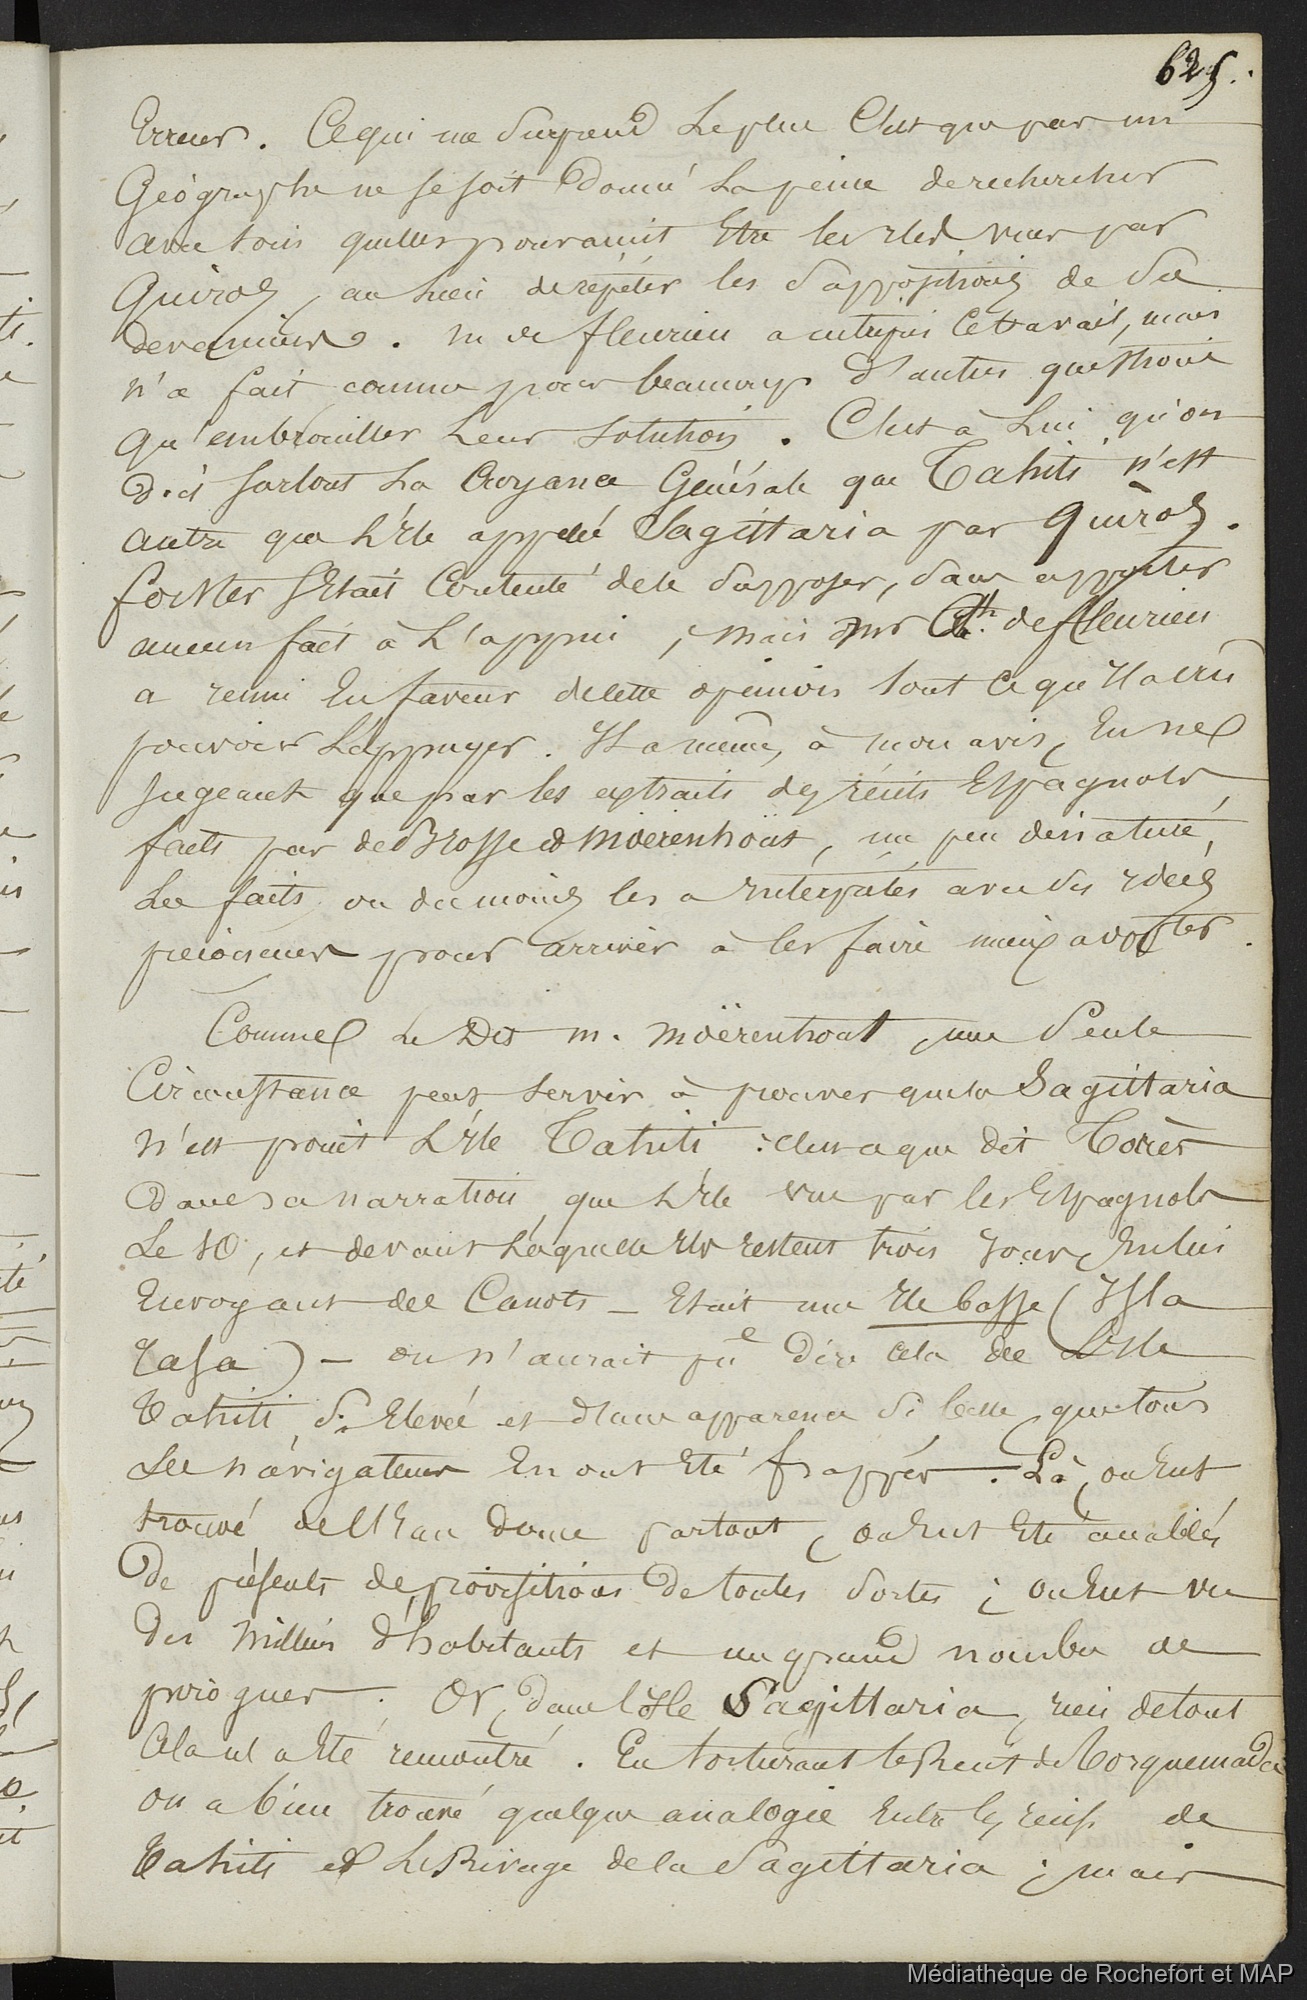 625.
Erreur. Ce qui me surprend le plus C'est que pas un
Géographe ne se soit donné la peine de rechercher
avec soin quelles pouvaient Etre les Iles vues par
Quiros, au lieu de répéter les suppositions de ses
devanciers. M. de fleurieu a entrepris ce travail, mais
n'a fait comme pour beaucoup d'autres questions
qu'embrouiller leur solution. C'est à Lui qu'on
doit surtout la Croyance Générale que Tahiti n'est
autre que L'Ile appelée Sagittaria par Quiros.
forster s'Etait Contenté de le supposer, sans apporter
aucun fait à L'appui, mais Mr de fleurieu
a réuni En faveur de cette opinion tout ce qu'Il a cru
pouvoir L'appuyer. Il a même, à mon avis, En ne
jugeant que par les extraits des récits Espagnols
faits par de Brosse et Moërenhoüt, un peu dénaturé,
Les faits ou du moins les a Interprétés avec des Idées
préconçues pour arriver à les faire mieux adopter.
Comme Le Dit M. Moërenhout, une Seule
Circonstance peut Servir à prouver que la Sagittaria
n'est point L'Ile Tahiti : c'est ce que dit Torès
Dans sa narration que L'Ile vue par les Espagnols
Le 10, et devant Laquelle Ils restent trois Jours, En lui
Envoyant des Canots _ Etait une Ile basse (Isla
rasa) — on n'aurait pu Dire cela de L'Ile
Tahiti si Elevée et d'une apparence si belle que tous
Les navigateurs En ont Eté frappés. Là, on Eut
trouvé de l'Eau douce partout, on Eut Eté accablés
De présents, de provisions De toutes Sortes ; on Eut vu
Des Milliers d'habitants et un grand nombre de
pirogues. Or, dans l'Ile Sagittaria, rien de tout
Cela n'a Eté rencontré. En torturant le Récit de Torquemada
on a bien trouvé quelque analogie Entre les récifs de
Tahiti et Le Rivage de la Sagittaria ; mais
Médiathèque de Rochefort et MAP